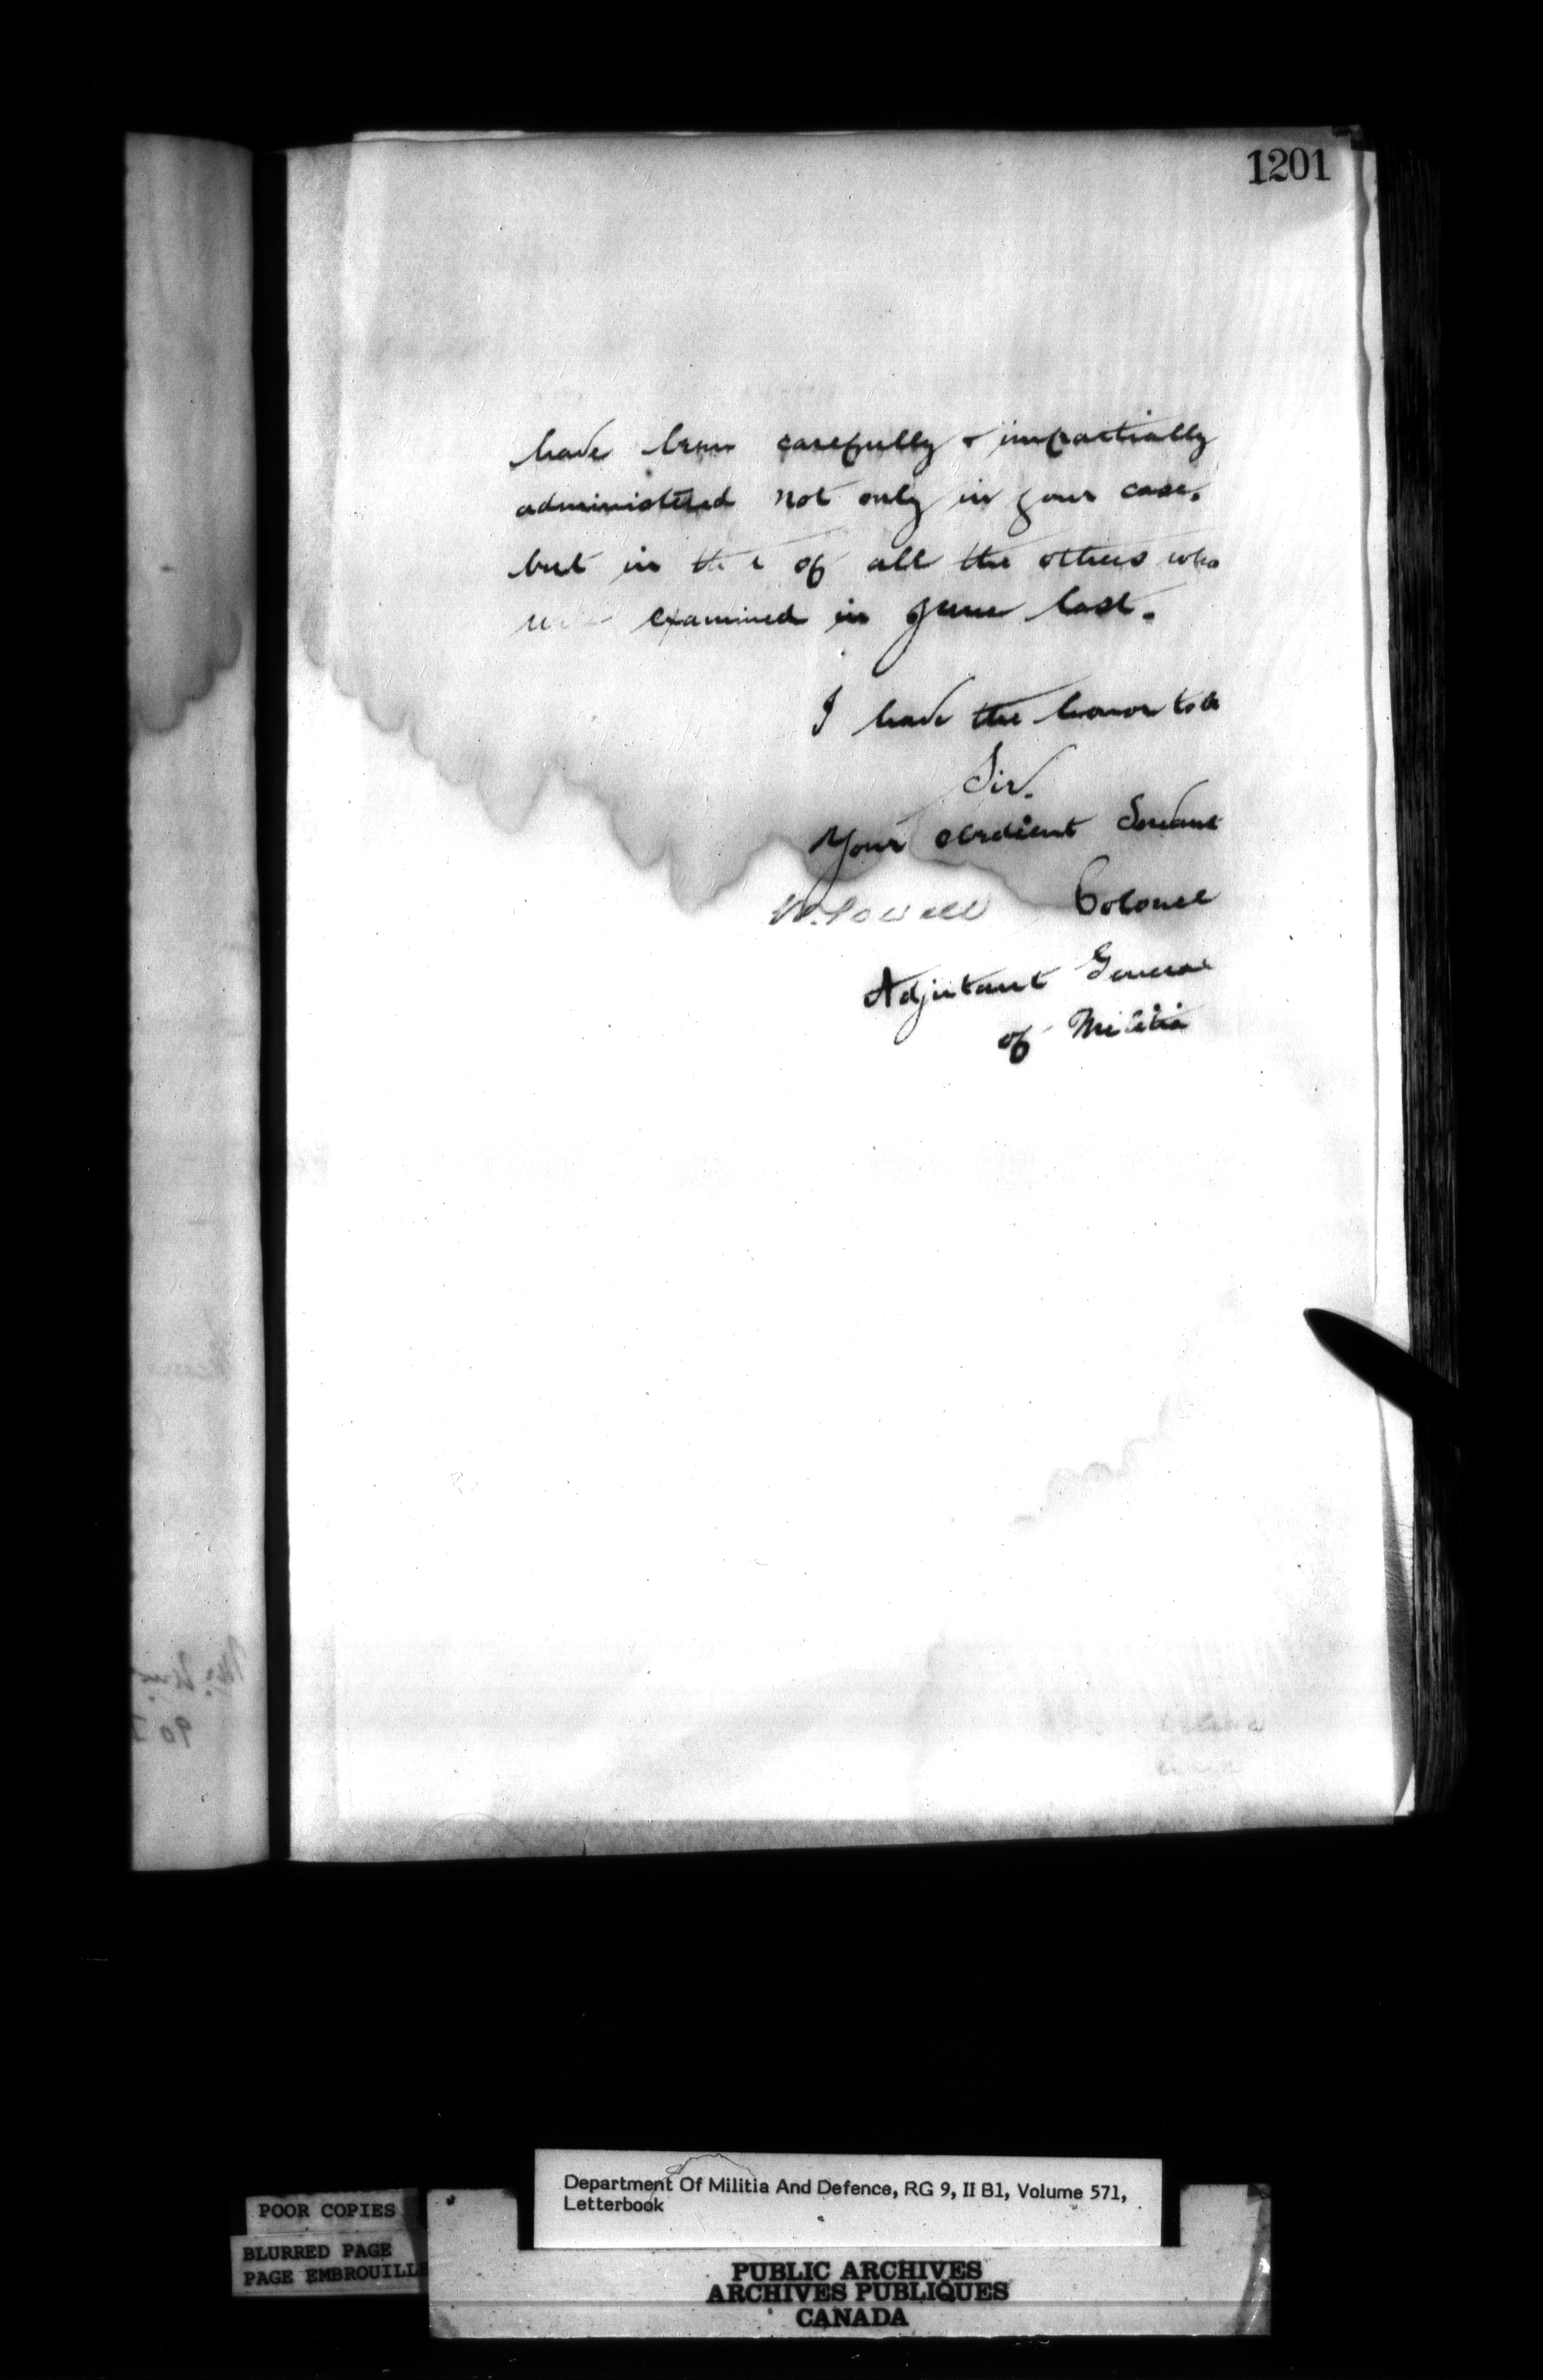 1201
have been carefully & impartially
administered not only in your case.
but in the of all the others who
were examined in June last.
I have the honor to be
Sir.
Your obedient Servant
W. Powell Colonel
Adjutant General
of Militia
Department Of Militia And Defence, RG 9, II B1, Volume 571,
Letterbook
POOR COPIES
BLURRED PAGE
PAGE EMBROUILLE
PUBLIC ARCHIVES
ARCHIVES PUBLIQUES
CANADA